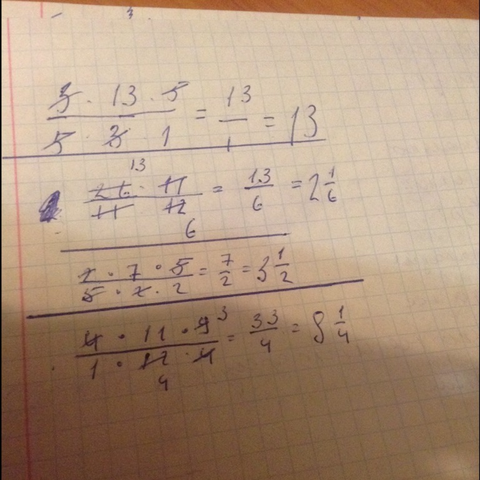 3 · 13 · 5 / 5 · 3 · 1 = 13 / 1 = 13
13
26 · 11 / 11 · 12 = 13 / 6 = 2 1/6
6
· 7 · 5 / 5 · · 2 = 7 / 2 = 3 1/2
4 · 11 · 9 3 / 1 · 12 · 4 = 33 / 4 = 8 1/4
4